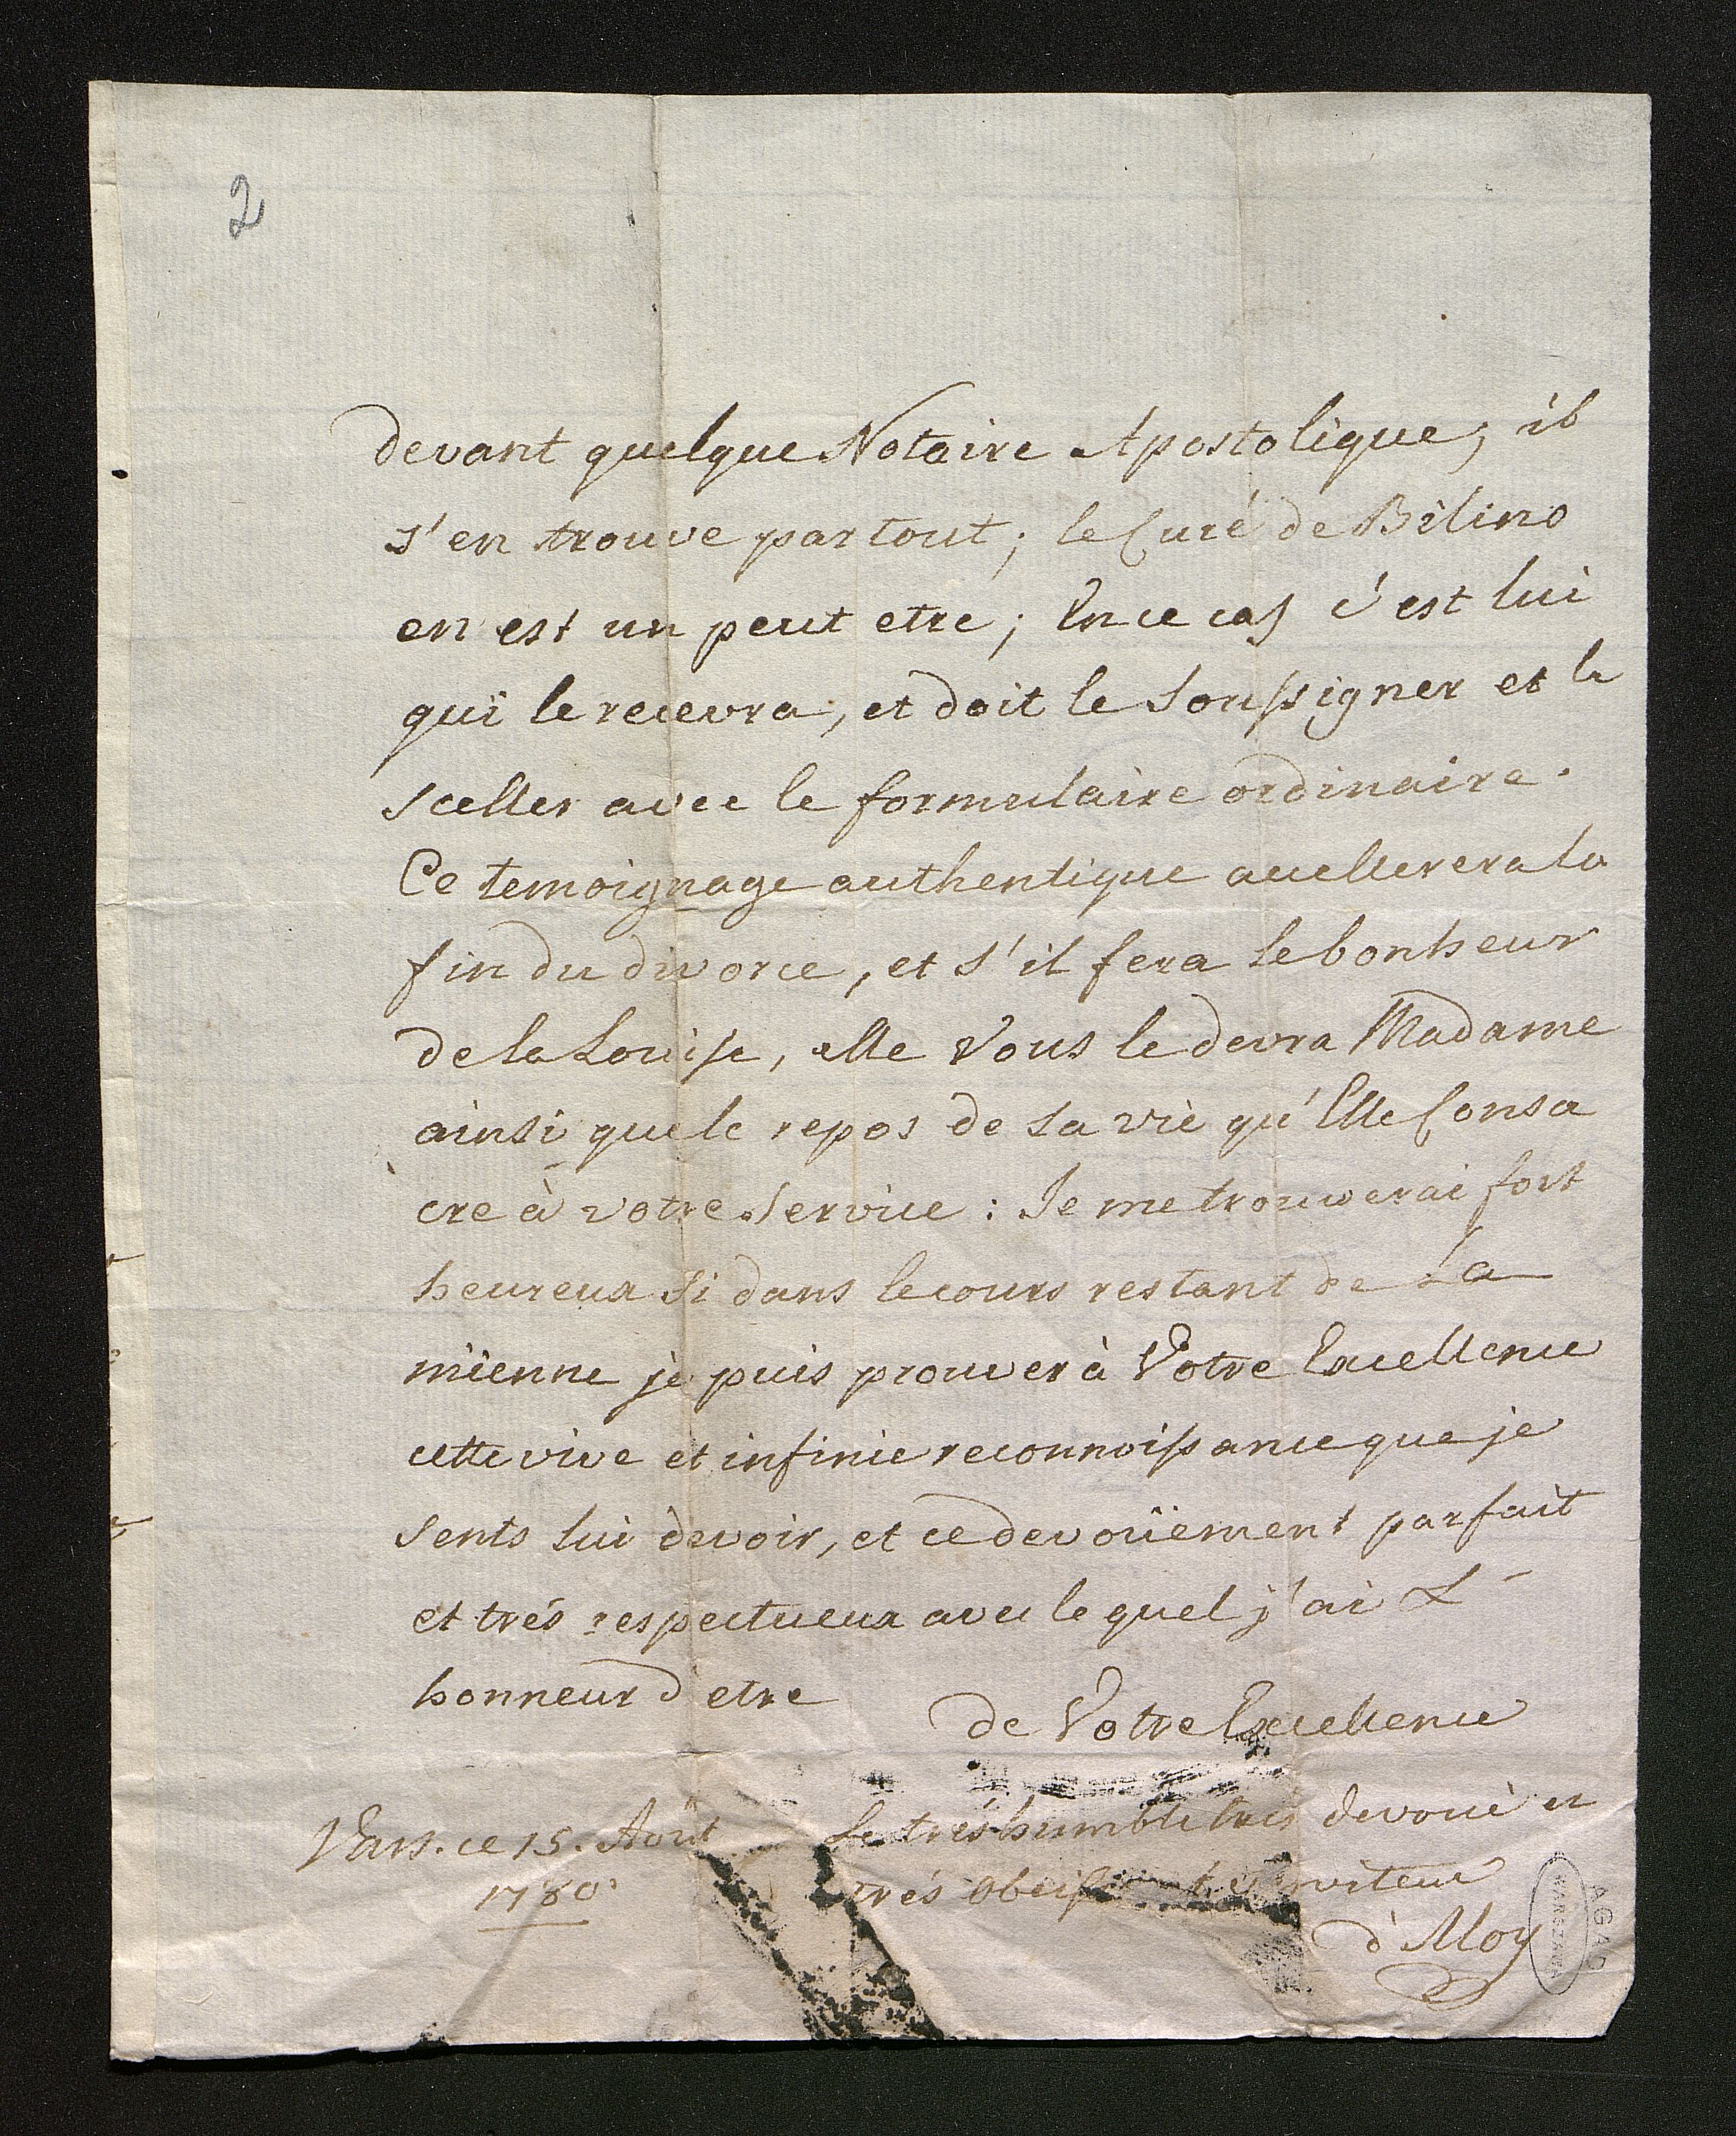 2
devant quelque Notaire Apostolique, il
s'en trouve par tout; le Curé de Bilino
en est un peut etre; En ce cas c'est lui
qui le recevra, et doit le soussigner et le
sceller avec le formulaire ordinaire.
Ce temoignage authentique accellerera la
fin du divorce, et s'il fera le bonheur
de la Louise, elle Vous le devra Madame
ainsi que le repos de sa vie qu'Elle Consa
cre à votre service: Je me trouverai fort
heureux si dans le cours restant de la
mienne je puis prouver à Votre Excellence
cette vive et infinie reconnoissance que je
sents lui devoir, et ce devoüement parfait
et trés respectueux avec le quel j'ai L'
honneur d'etre
de Votre Excellence
Vars. ce 15. Aôut
1780
le trés humble trés devoué et
trés obeissant serviteur
d'Aloy
AGAD
WARSZAWA